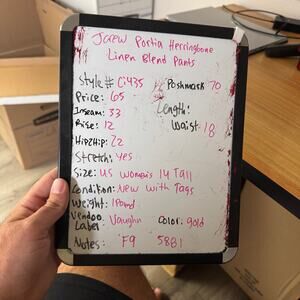 JCrew Portia Herringbone
Linen Blend Pants
Style# Ci435 Poshmark 70
Price: 65
Length:
Inseam: 33
Waist 18
Rise: 12
Hip2Hip: 22
Stretch: yes
Size: US Women's 14 Tall
Condition: New with Tags
Weight: 1 Pound
Vendoo Label Vaughn Color: gold
Notes: F9 5881